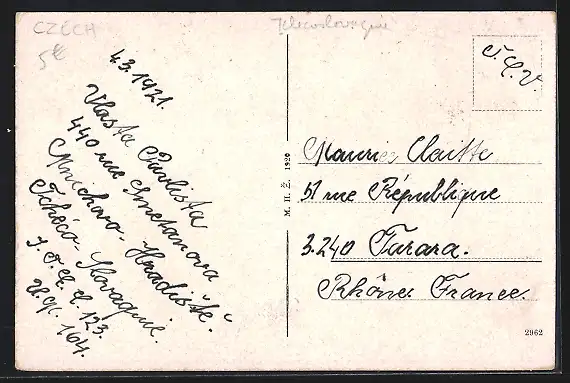 CZECH
5€
Tchécoslovaquie
4.3.1921.
Vlasta Pavlista
440 rue Smetanova
Mnichovo-Hradiště.
Tchéco-Slovaquie.
123.
164.
M. H. Ž. 1920
T.C.V.
Maurice Claitte
51 rue République
3.240 Tarara.
Rhône. France.
2962